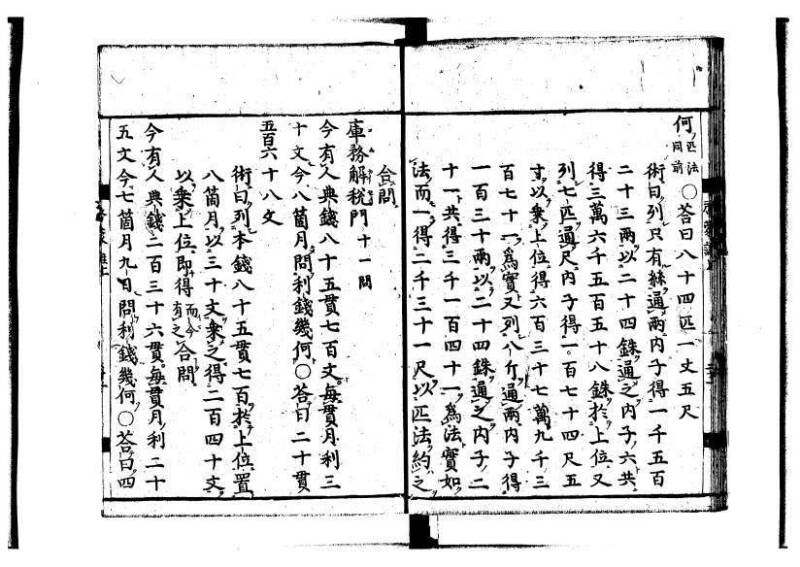 何匹法同前○荅曰八十四匹一丈五尺
術曰列只有絲通兩內子得一千五百
二十三兩以二十四銖通之內子六共
得三萬六千五百五十八銖於上位又
列七匹通尺內子得一百七十四尺五
寸以乗上位得六百三十七萬九千三
百七十一爲實又列八斤通兩內子得
一百三十兩以二十四銖通之內子二
十一共得三千一百四十一爲法實如
法而一得二千三十一尺以匹法約之
合問
庫務解稅門十一問
今有人典錢八十五貫七百文每貫月利三
十文今八箇月問利錢幾何○荅曰二十貫
五百六十八文
術曰列本錢八十五貫七百於上位置
八箇月以三十文乗之得二百四十文
以乗上位即得而今有之合問
今有人典錢二百三十六貫每貫月利二十
五文今七箇月九日問利錢幾何○荅曰四